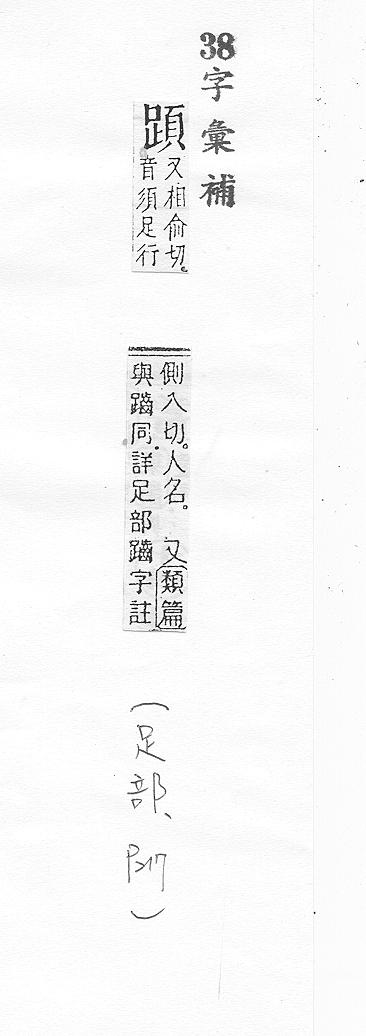 38字彙補
又相俞切。
音須足行
側入切。人名。又類篇
與同詳足部字註
(足部、P217)